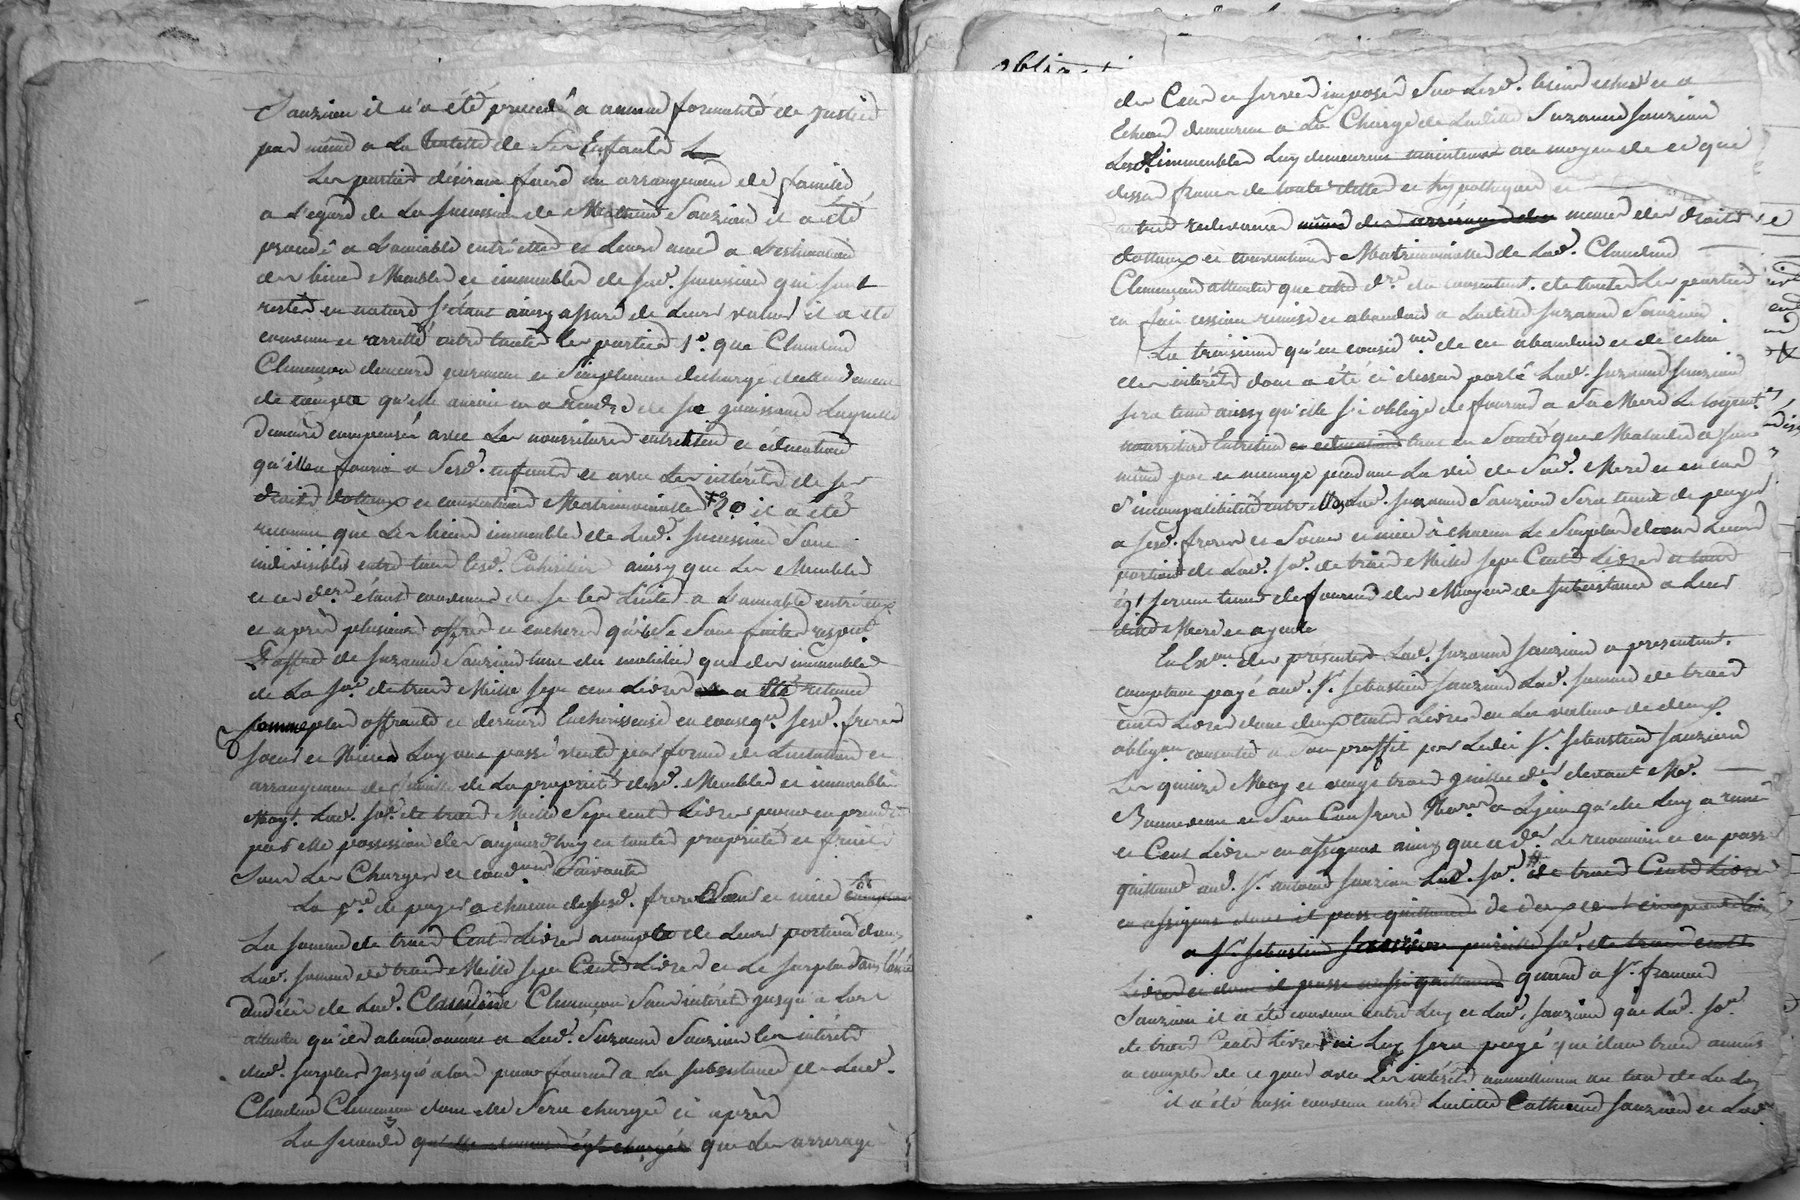 Sauzion il n'a été procedé a aucune formalité de justice
par même a la tutelle de ses Enfants
Les parties désirant faire un arrangement de famille
a l'egard de la succession de Mathieu Sauzion il a été
procedé a l'amiable entr'elles et leurs amis a l'estimation
des biens Meubles et immeubles de lad. succession qui sont
restés en nature s'étant ainsy assuré de leur valeur il a été
convenu et arretté entre toutes les parties 1°. que Claudine
Clemençon demeure purement et simplement dechargé
de compte qu'elle auroit a rendre de sa jouissance laquelle
demeure compensée avec les nourriture entretien et éducation
qu'elle a fourni a sesd. enfants et avec les intérêts de ses
droits dottaux et conventions Matrimonialles 2° il a été
reconnu que les biens immeubles de lad. succession sont
indivisibles entre tous lesd. Cohéritiers ainsy que les Meubles
et ces ders étant convenus de se les liciter a l'amiable entr'eux
et après plusieurs offres et encheres qu'ils se sont faites respect.
L'offre de Suzanne Sauzion tant du mobilier que des immeubles
de la so.e de trois Mille sept cent Livres a été retenue
comme plus offrante et derniere Encherisseuse en conseq.ce sesd. freres
sœur et Niece luy ont passé vente par forme de licitation et
arrangement de famille de la propriété desd. Meubles et immeubles
Moy.t lad. so.e de trois Mille Sept cent Livres pour en prendre
par elle possession des aujourd'huy en toute propriété et fruits
sous les Charges et conditions Suivantes
La p.re de payer a chacun de sesd. freres Sœur et niece
La somme de trois Cent Livres acompte de leurs portions dans
lad. somme de trois Mille sept Cent Livres et le surplus dans l'année
du décès de lad. Claudine Clemençon sans intérêt jusqu'a lors
attendu qu'ils abandonnent a lad. Suzanne Sauzion les intérêts
dud. surplus jusqu'alors pour fournir a la subsistance de lad.
Claudine Clemençon dont elle sera chargée ci après
La seconde que les arrerages
des Cens et servis imposés sur lesd. biens echus et a
Echeoir demeurent a la Charge de Laditte Suzanne Sauzion
lesd. immeubles luy demeurent au moyen de ce que
dessus francs de toutes dettes et hypotheques et
autres redevances même des droits
dottaux et conventions Matrimonialles de lad. Claudine
Clemençon attendu que cette d.re du consentem.t de toutes les parties
en fait cession remise et abandon a Laditte Suzanne Sauzion
La troisieme qu'en consid.on de cet abandon et de celui
des intérêts dont a été ci dessus parlé Lad. Suzanne Sauzion
sera tenue ainsy qu'elle s'i oblige de fournir a sa Mere le logem.t
nourriture Entretien tant en Santé que Maladie a son
même pot et menage pendant la vie de sad. Mere et en cas
d'incompatibilité entr'elles lad. Suzanne Sauzion sera tenue de payer
a sesd. freres et Soeur et niece à chacun le surplus de leurs
portions de lad. so.e de trois Mille sept Cent Livres
seront tenus de fournir des Moyens de subsistance a leur
ditte Mere et ayeule
En Ex.on des présentes Lad. Suzanne Sauzion a presentem.t
comptant payé aud. S.r Sebastien Sauzion lad. somme de trois
cents Livres dont deux cents Livres en la valeur de deux
oblig.on consentie a son proffit par Ledit S.r Sebastien Sauzion
les quinze May et vingt trois devant Me.
Bonnevaux et son Confrere No.res a Lyon qu'elle luy a remis
et Cent Livres en assignats ainsy que led. le reconnoit et en passe
quittance aud. S.r antoine Sauzion Lad. so.e de trois Cents Livres
en assignats dont il passe quittance de deux cent cinquante
a S.r Sebastien Sauzion pareille so.e de trois cents
Livres et dont il passe aussi quittance quand a S.r francois
Sauzion il a été convenu entre luy et lad. Sauzion que lad. so.e
de trois Cents Livres ne luy sera payé que dans trois années
a compter de ce jour avec les intérêts annuellement au taux de la loy
il a été aussi convenu entre Laditte Catherine Sauzion et lad.